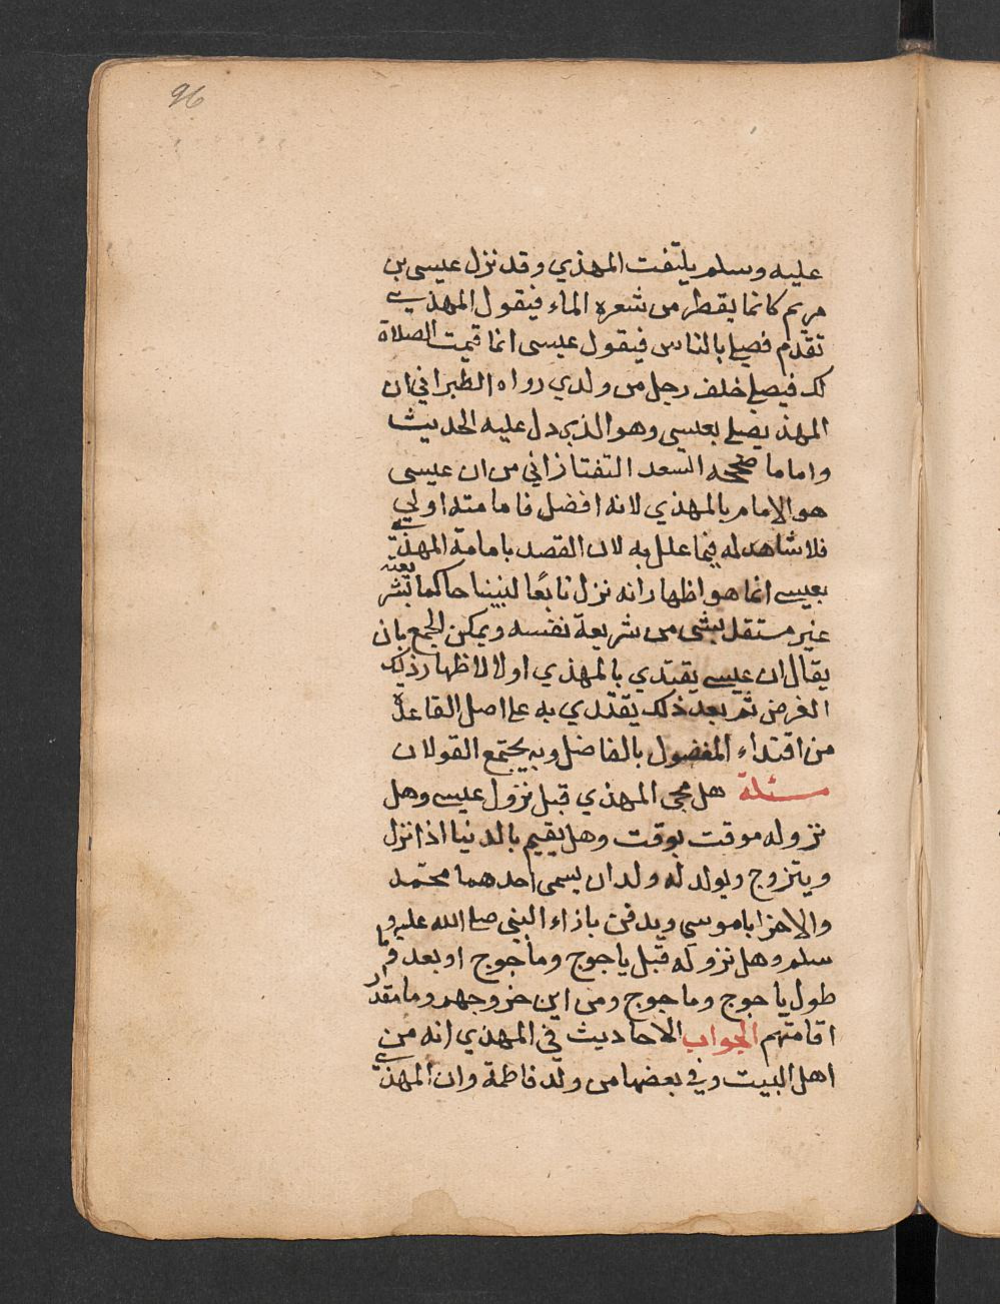 96
عليه وسلم يلتفت المهذي وقد نزل عيسى بن
مريم كانما يقطر من شعره الماء فيقول المهذي
تقدم فصلي بالناس فيقول عيسى انما اقيمت الصلاة
لك فيصلي خلف رجل من ولدي رواه الطبراني ان
المهذ يصلي بعيسى وهو الذي دل عليه الحديث
واما ما صححه السعد التفتازاني من ان عيسى
هو الامام بالمهذي لانه افضل فامامته اولي
فلا شاهد له فيما علل به لان القصد بامامة المهذي
بعيسى انما هو اظهار انه نزل تابعًا لنبينا حاكما بشريعته
غير مستقل بشى من شريعة نفسه ويمكن الجمع بان
يقال ان عيسى يقتدي بالمهذي اولا لاظهار ذلك
الغرض ثم بعد ذلك يقتدي به على اصل القاعدة
من اقتداء المفضول بالفاضل وبه يجتمع القولان
مسئلة هل مجى المهذي قبل نزول عيسى وهل
نزوله موقت بوقت وهل يقيم بالدنيا اذا نزل
ويتزوج ويولد له ولدان يسمى احدهما محمد
والاخر اباموسي ويدفن بازاء النبي صلى الله عليه و
سلم وهل نزوله قبل ياجوج وماجوج او بعد وما
طول ياجوج وماجوج ومن اين خروجهم وما مقدار
اقامتهم الجواب الاحاديث في المهذي انه من
اهل البيت وفي بعضها من ولد فاطمة وان المهذي